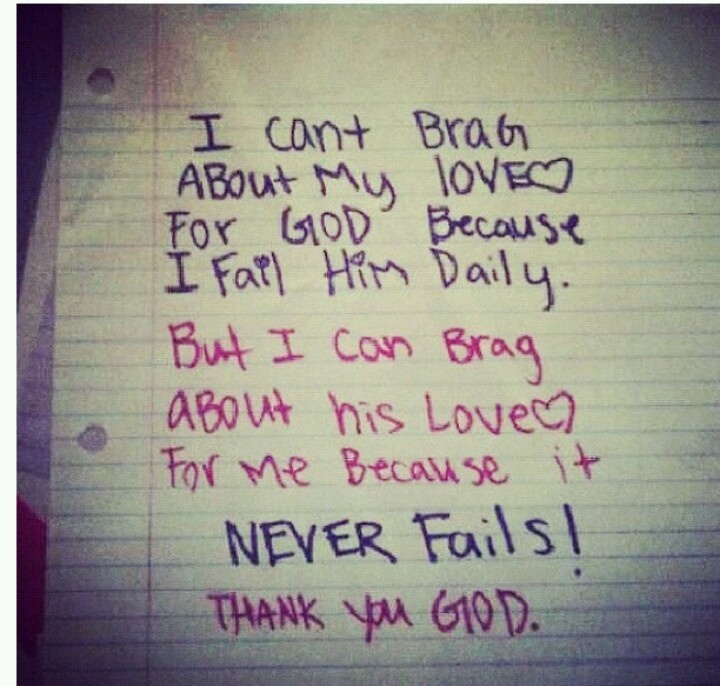 I Cant BraG
ABout My lOVE♡
For GOD Because
I Fail Him Daily.
But I Can Brag
ABOUt his Love♡
For Me Because it
NEVER Fails!
THANK you GOD.